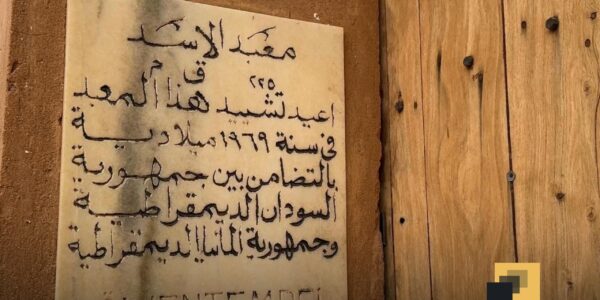 معبد الاسد
ق م
٢٢٥
اعيد تشييد هذا المعبد
في سنة ١٩٦٩ ميلادية
بالتضامن بين جمهورية
السودان الديمقراطية
وجمهورية المانيا الديمقراطية